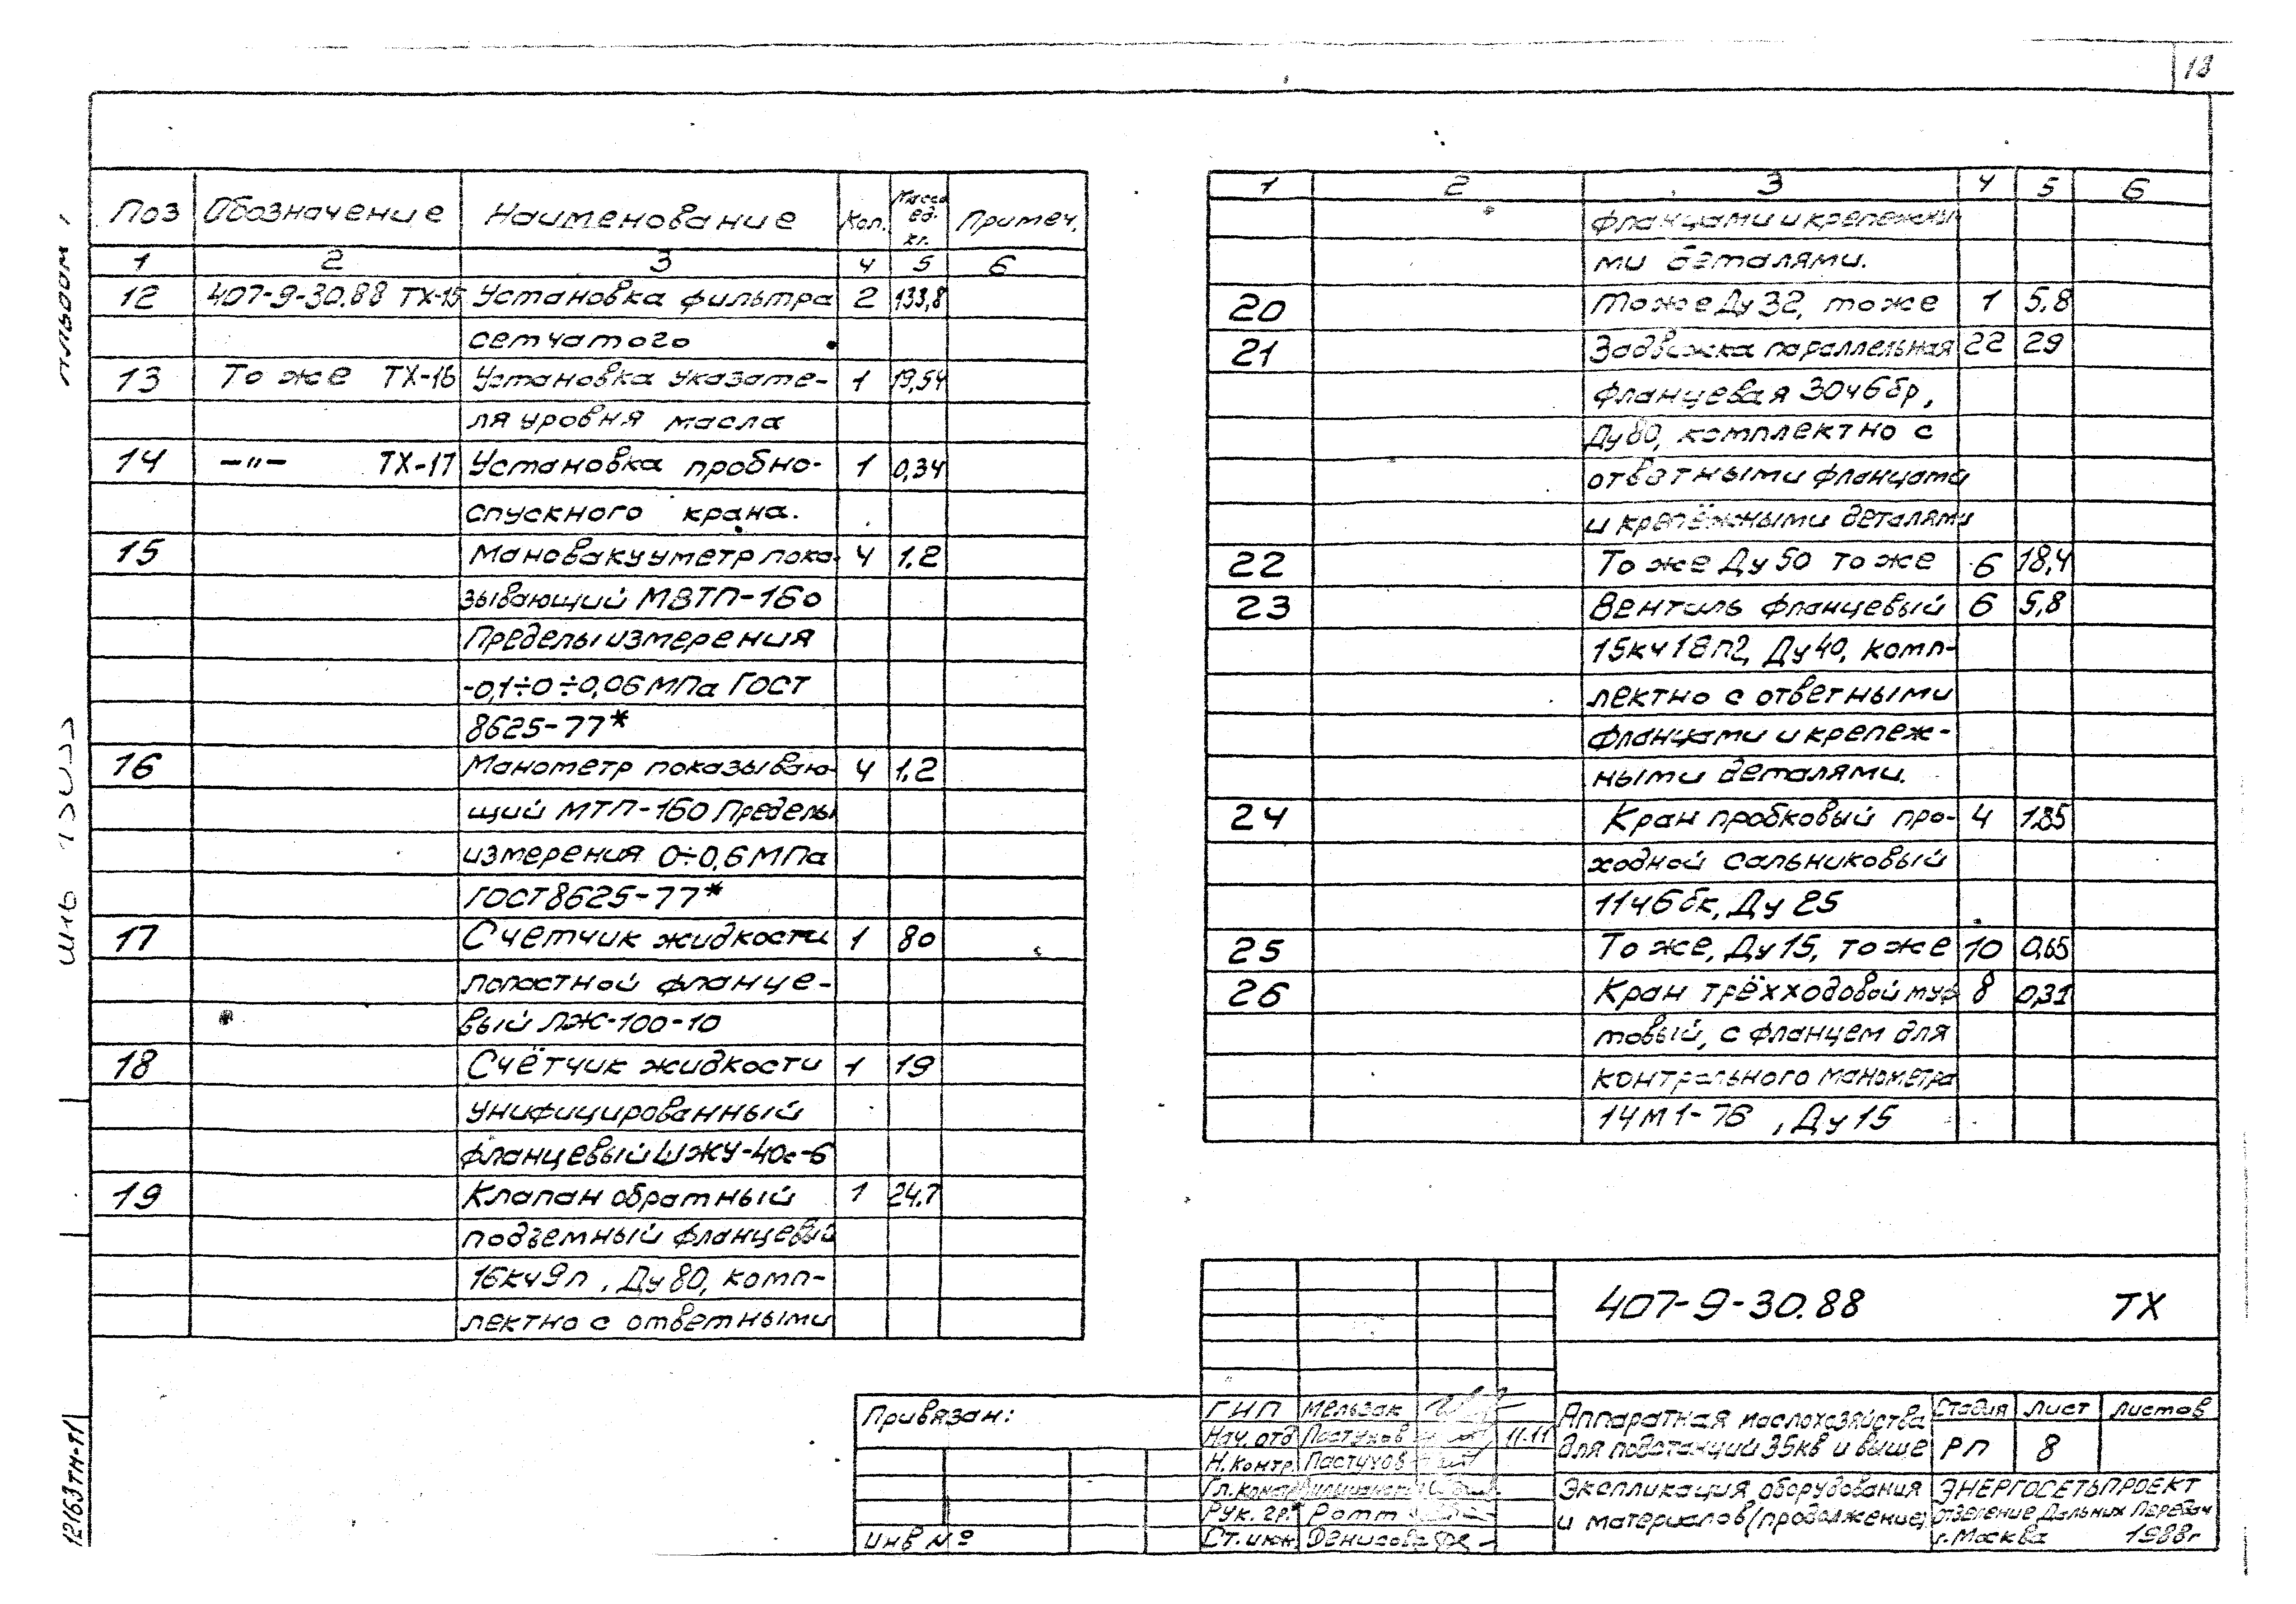 18
Альбом 1
Поз Обозначение Наименование Кол. Масса ед. кг. Примеч.
1 2 3 4 5 6
12 407-9-30.88 ТХ-15 Установка фильтра 2 133,8
сетчатого
13 То же ТХ-16 Установка указате- 1 19,54
ля уровня масла
14 —"— ТХ-17 Установка пробно- 1 0,34
спускного крана.
15 Мановакууметр пока- 4 1.2
зывающий МВТП-160
Пределы измерения
-0,1÷0÷0,06 МПа ГОСТ
8625-77*
16 Манометр показываю- 4 1.2
щий МТП-160 Пределы
измерения 0÷0,6 МПа
ГОСТ 8625-77*
17 Счетчик жидкости 1 80
лопастной фланце-
вый ЛЖ-100-10
18 Счётчик жидкости 1 19
унифицированный
фланцевый ШЖУ-40с-6
19 Клапан обратный 1 24.7
подъемный фланцевый
16кч9п, Ду 80, комп-
лектно с ответными
1 2 3 4 5 6
фланцами и крепежны-
ми деталями.
20 То же Ду 32, то же 1 5.8
21 Задвижка параллельная 22 29
фланцевая 30ч6бр,
Ду 80, комплектно с
ответными фланцами
и крепёжными деталями
22 То же Ду 50 то же 6 18,4
23 Вентиль фланцевый 6 5,8
15кч18п2, Ду 40, комп-
лектно с ответными
фланцами и крепеж-
ными деталями.
24 Кран пробковый про- 4 1.85
ходной сальниковый
11ч6бк, Ду 25
25 То же, Ду 15, то же 10 0,65
26 Кран трёхходовой муф 8 0,31
товый, с фланцем для
контрольного манометра
14М1-76, Ду 15
407-9-30.88 ТХ
Привязан:
Инв №
ГИП Мельзак
Нач. отд Пастухов 11.11
Н. контр. Пастухов
Гл. констр
Рук. гр. Ротт
Ст. инж. Денисова
Аппаратная маслохозяйства
для подстанций 35кв и выше
Стадия Лист Листов
РП 8
Экспликация оборудования
и материалов (продолжение)
ЭНЕРГОСЕТЬПРОЕКТ
отделение Дальних Передач
г. Москва 1988г
12163тм-т1